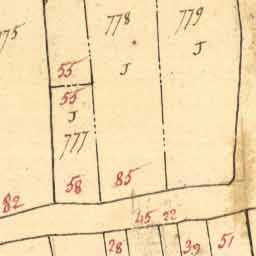 778
779
775
J
J
55
55
J
777
58
85
82
45 22
28
39
51